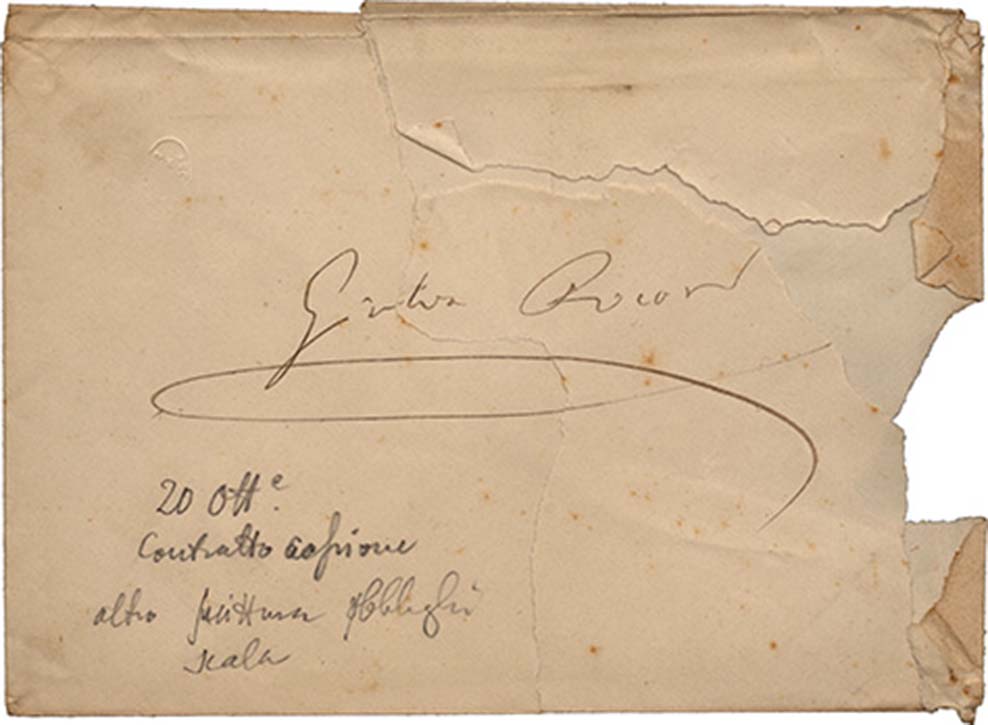 Giulio Ricordi
20 Ott.e
Contratto cessione
altra scrittura obblighi
scala